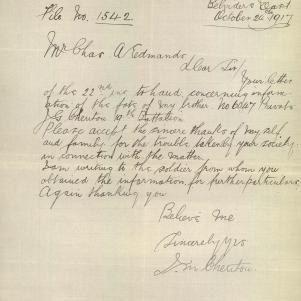 Belvidere East
File No. 1542. October 24th 1917
Mr Chas A Edmonds
Dear Sir/
Your letter
of the 22nd inst to hand, concerning inform-
ation of the fate of my brother No 6047 Private
J G Cheriton 9th Battalion
Please accept the sincere thanks of myself
and family for the trouble taken by your society
in connection with the matter,
I am writing to the soldier from whom you
obtained the information, for further particulars
Again thanking you
Believe Me
Sincerely Yrs
J. M. Cheriton.